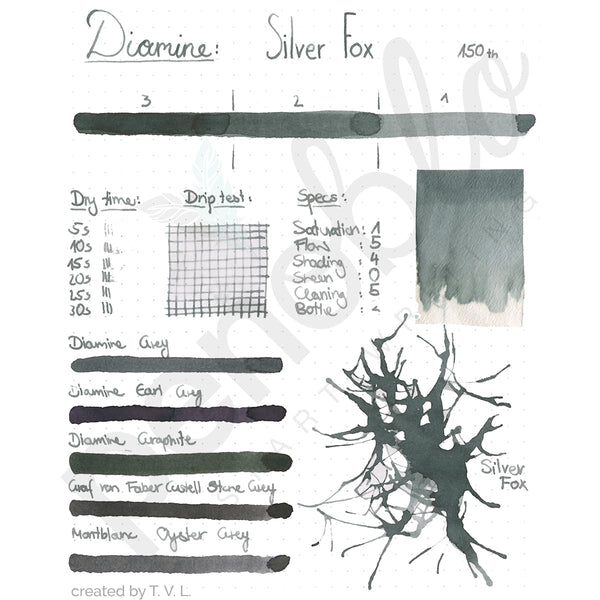 Diamine: Silver Fox 150th
3 2 1
Dry time: Drip test: Specs:
5s
10s
15s
20s
25s
30s
Saturation: 1
Flow : 5
Shading : 4
Sheen : 0
Cleaning : 5
Bottle : 1
Diamine Grey
Diamine Earl Grey
Diamine Graphite
Graf von Faber Castell Stone Grey
Montblanc Oyster Grey
Silver
Fox
penoblo
created by T. V. L.